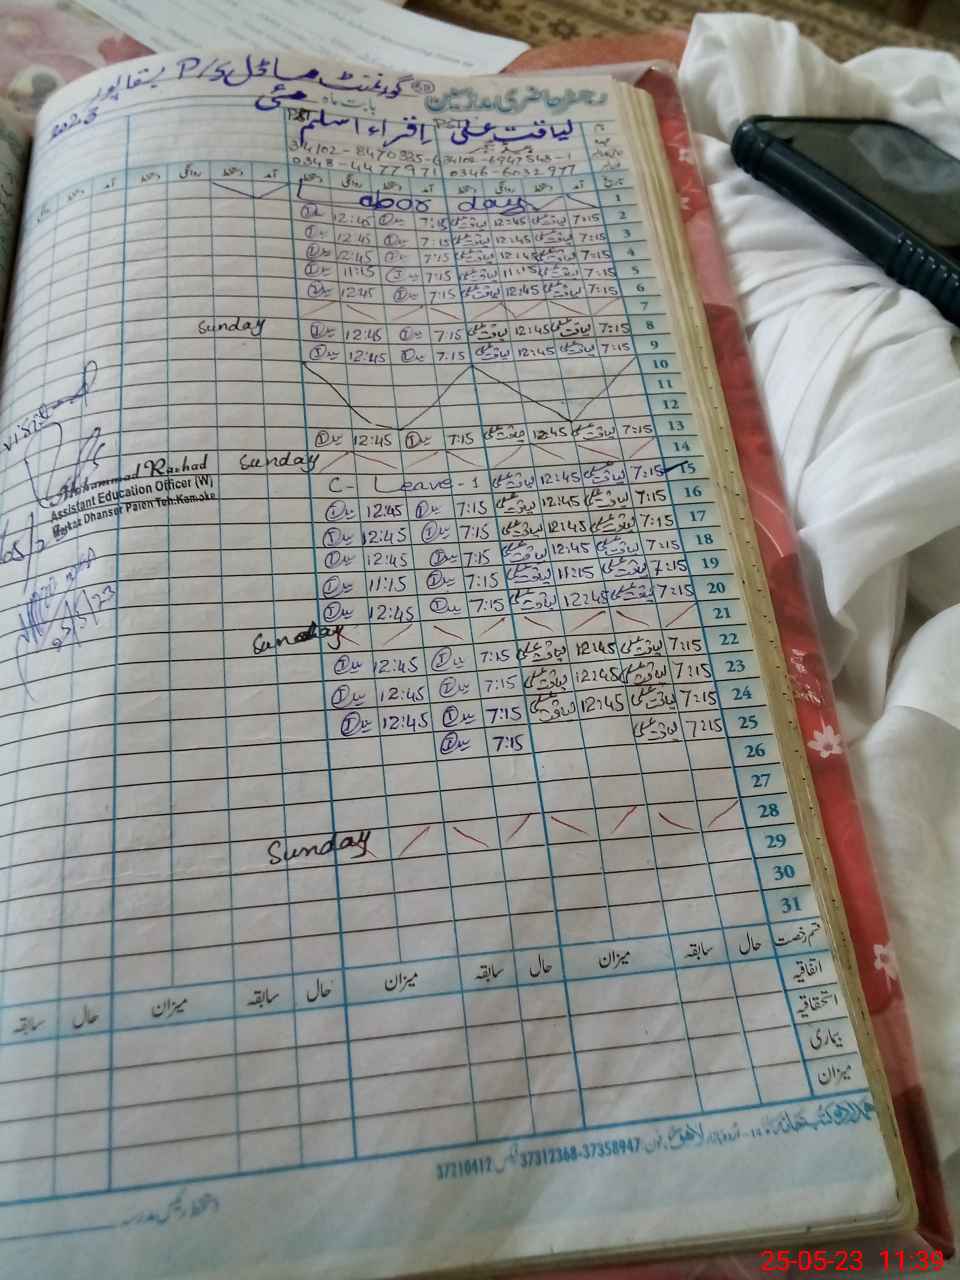 رجسٹر حاضری مدرسین گورنمنٹ ماڈل P/S
بابت ماہ مئی 2023
لیاقت علی PST اقراء اسلم PST
34102-6947543-1 34102-8470335-6
0346-6032977 0348-4477971
تاریخ آمد دستخط روانگی دستخط آمد دستخط روانگی دستخط آمد دستخط روانگی دستخط
1 abor day
2 7:15 لیاقت علی 12:45 لیاقت علی 7:15 12:45
3 7:15 لیاقت علی 12:45 لیاقت علی 7:15 12:45
4 7:15 لیاقت علی 12:45 لیاقت علی 7:15 12:45
5 7:15 لیاقت علی 11:15 لیاقت علی 7:15 11:15
6 7:15 لیاقت علی 12:45 لیاقت علی 7:15 12:45
7 Sunday
8 7:15 لیاقت علی 12:45 لیاقت علی 7:15 12:45
9 7:15 لیاقت علی 12:45 لیاقت علی 7:15 12:45
10
11
12
13 7:15 لیاقت علی 12:45 لیاقت علی 7:15 12:45
14 Sunday
15 7:15 لیاقت علی 12:45 لیاقت علی C- Leave-1
16 7:15 لیاقت علی 12:45 لیاقت علی 7:15 12:45
17 7:15 لیاقت علی 12:45 لیاقت علی 7:15 12:45
18 7:15 لیاقت علی 12:45 لیاقت علی 7:15 12:45
19 7:15 لیاقت علی 11:15 لیاقت علی 7:15 11:15
20 7:15 لیاقت علی 12:45 لیاقت علی 7:15 12:45
21 Sunday
22 7:15 لیاقت علی 12:45 لیاقت علی 7:15 12:45
23 7:15 لیاقت علی 12:45 لیاقت علی 7:15 12:45
24 7:15 لیاقت علی 12:45 لیاقت علی 7:15 12:45
25 7:15 لیاقت علی 7:15
26
27
28 Sunday
29
30
31
قسم رخصت حال سابقہ میزان حال سابقہ میزان حال سابقہ میزان حال سابقہ
اتفاقیہ
استحقاقیہ
بیماری
میزان
visited
Muhammad Rashad
Assistant Education Officer (W)
Markaz Dhansur Paien Teh: Kamoke
اردو بازار لاہور فون: 37312368-37358947 فیکس 37210412
دستخط رئیس مدرسہ
25-05-23 11:39